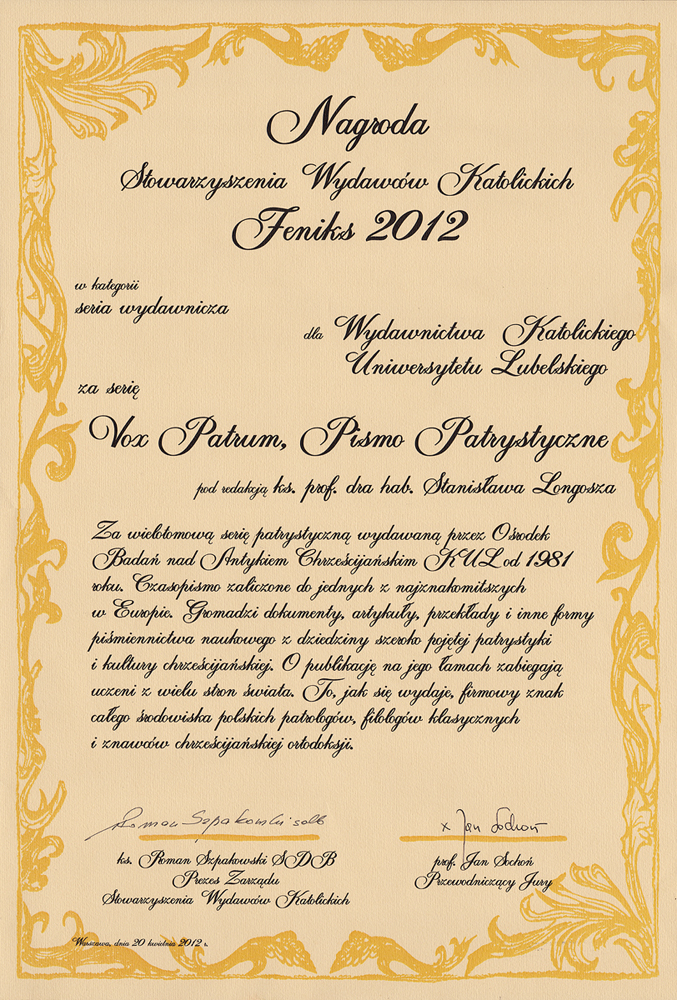 Nagroda
Stowarzyszenia Wydawców Katolickich
Feniks 2012
w kategorii
seria wydawnicza
dla Wydawnictwa Katolickiego
Uniwersytetu Lubelskiego
za serię
Vox Patrum, Pismo Patrystyczne
pod redakcją ks. prof. dra hab. Stanisława Longosza
Za wielotomową serię patrystyczną wydawaną przez Ośrodek
Badań nad Antykiem Chrześcijańskim KUL od 1981
roku. Czasopismo zaliczone do jednych z najznakomitszych
w Europie. Gromadzi dokumenty, artykuły, przekłady i inne formy
piśmiennictwa naukowego z dziedziny szeroko pojętej patrystyki
i kultury chrześcijańskiej. O publikację na jego łamach zabiegają
uczeni z wielu stron świata. To, jak się wydaje, firmowy znak
całego środowiska polskich patrologów, filologów klasycznych
i znawców chrześcijańskiej ortodoksji.
Roman Szpakowski sdb
x Jan Sochoń
ks. Roman Szpakowski SDB
Prezes Zarządu
Stowarzyszenia Wydawców Katolickich
prof. Jan Sochoń
Przewodniczący Jury
Warszawa, dnia 20 kwietnia 2012 r.